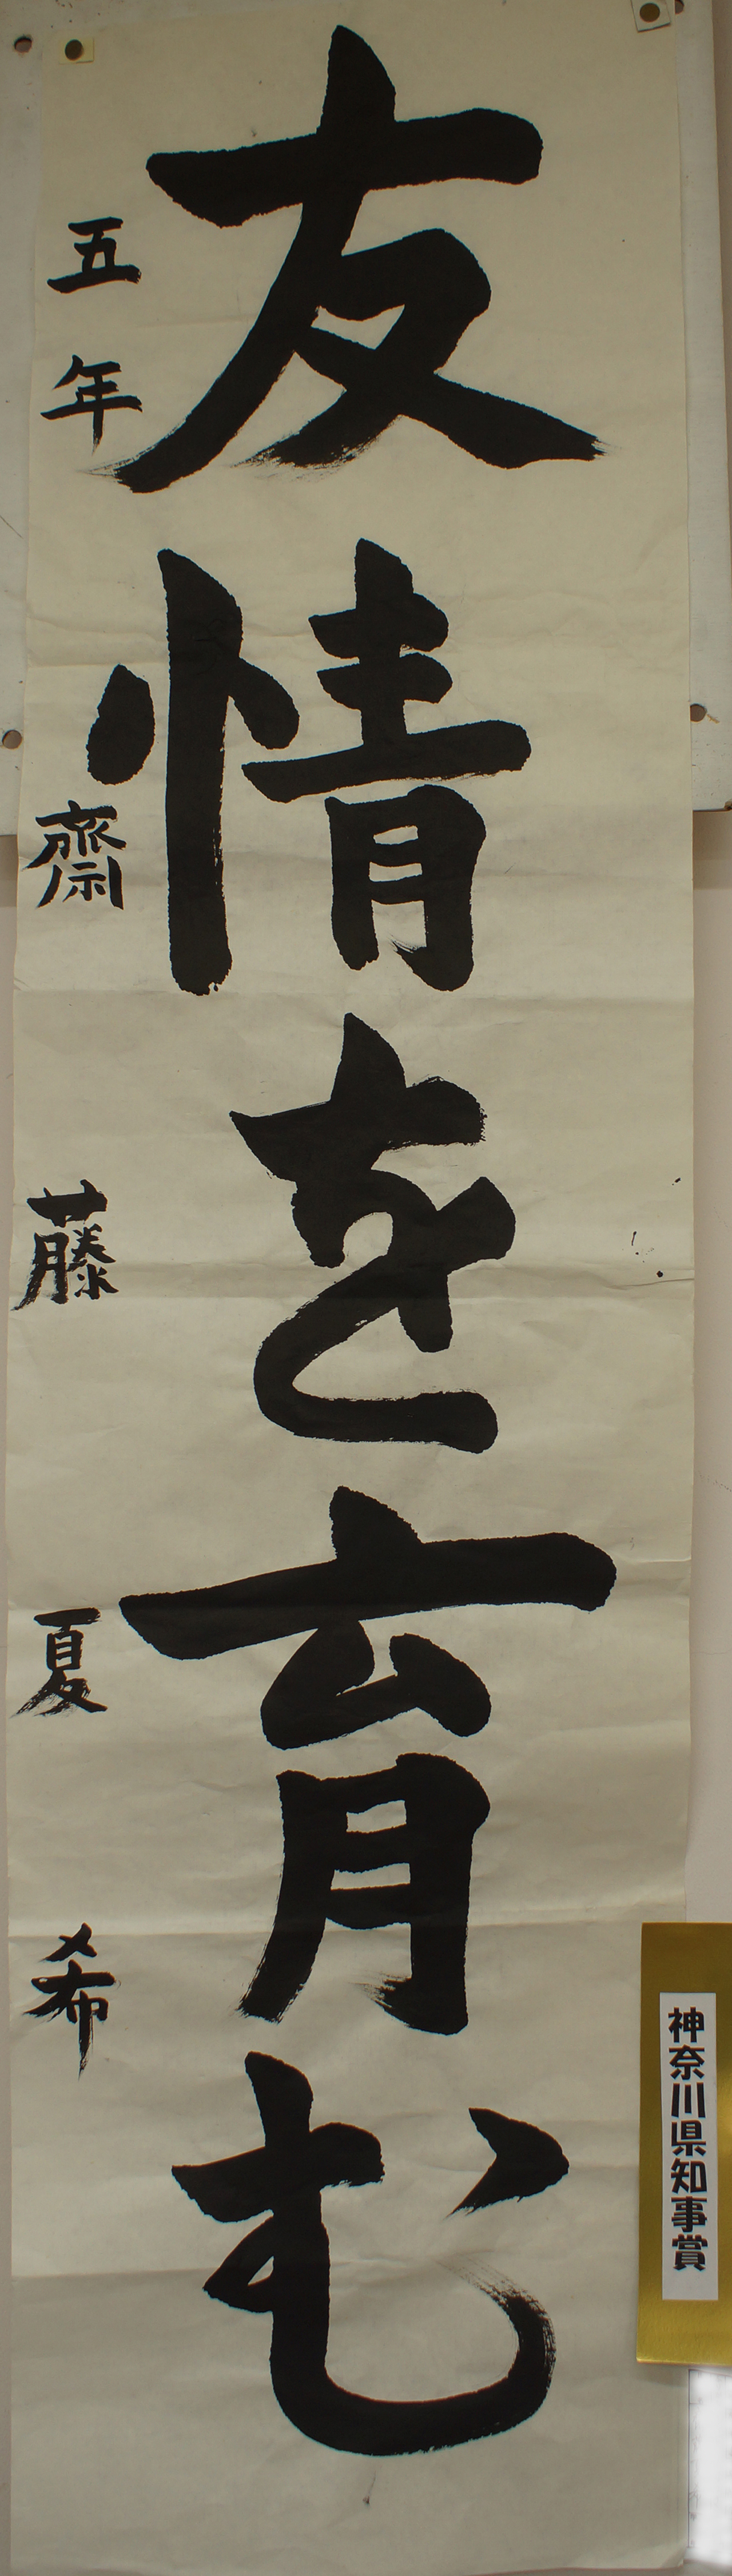 友情を育む
五年 齋藤夏希
神奈川県知事賞